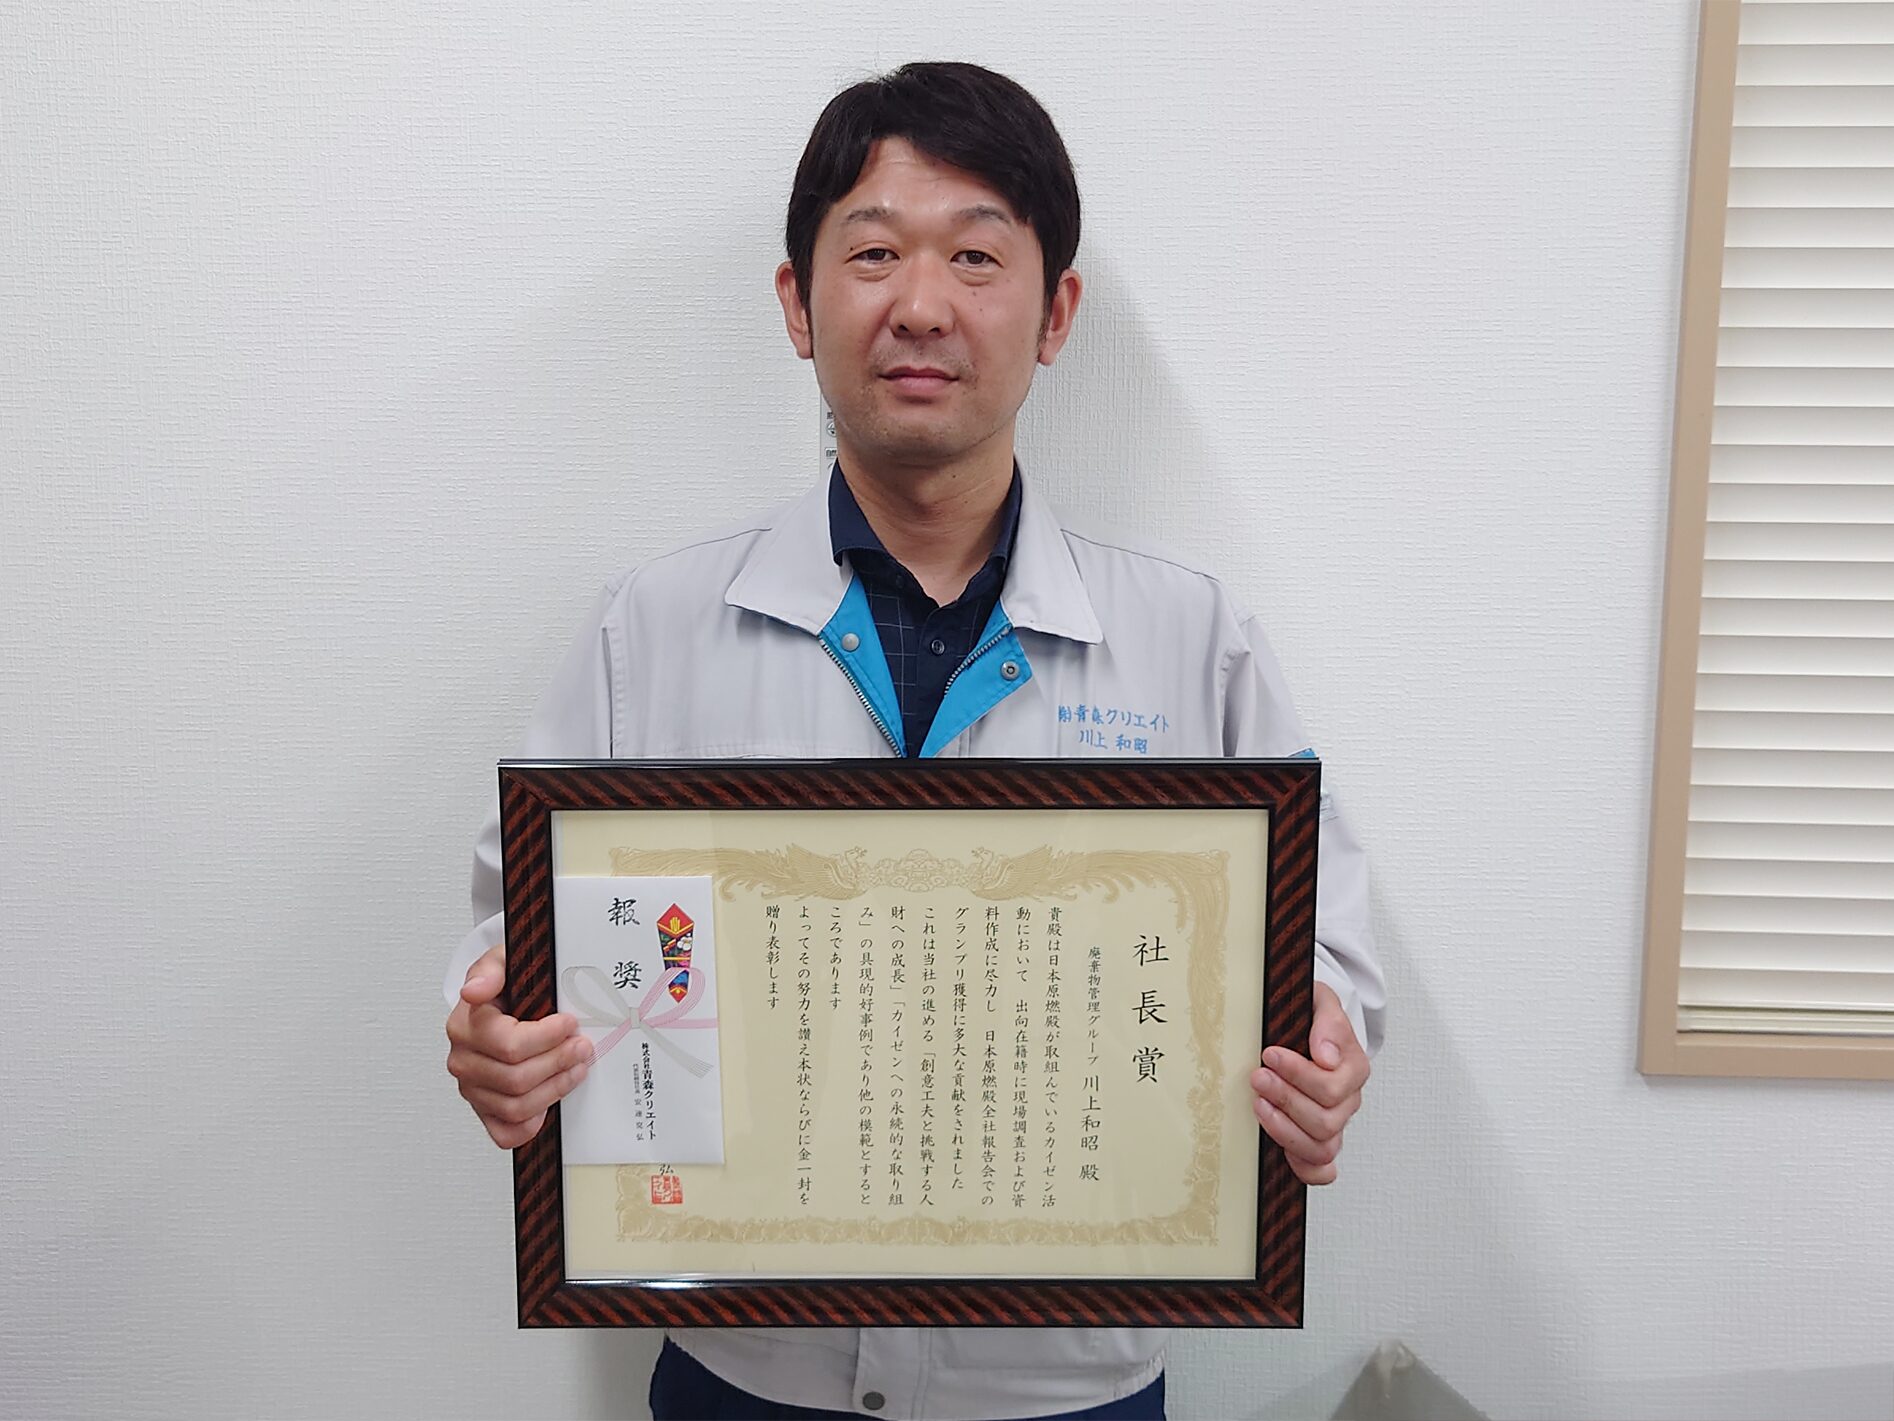 ㈱青森クリエイト
川上 和昭
社長賞
廃棄物管理グループ 川上和昭 殿
貴殿は日本原燃殿が取組んでいるカイゼン活
動において 出向在籍時に現場調査および資
料作成に尽力し 日本原燃殿全社報告会での
グランプリ獲得に多大な貢献をされました
これは当社の進める「創意工夫と挑戦する人
財への成長」「カイゼンへの永続的な取り組
み」の具現的好事例であり他の模範とすると
ころであります
よってその努力を讃え本状ならびに金一封を
贈り表彰します
弘
報奨
株式会社青森クリエイト
代表取締役社長